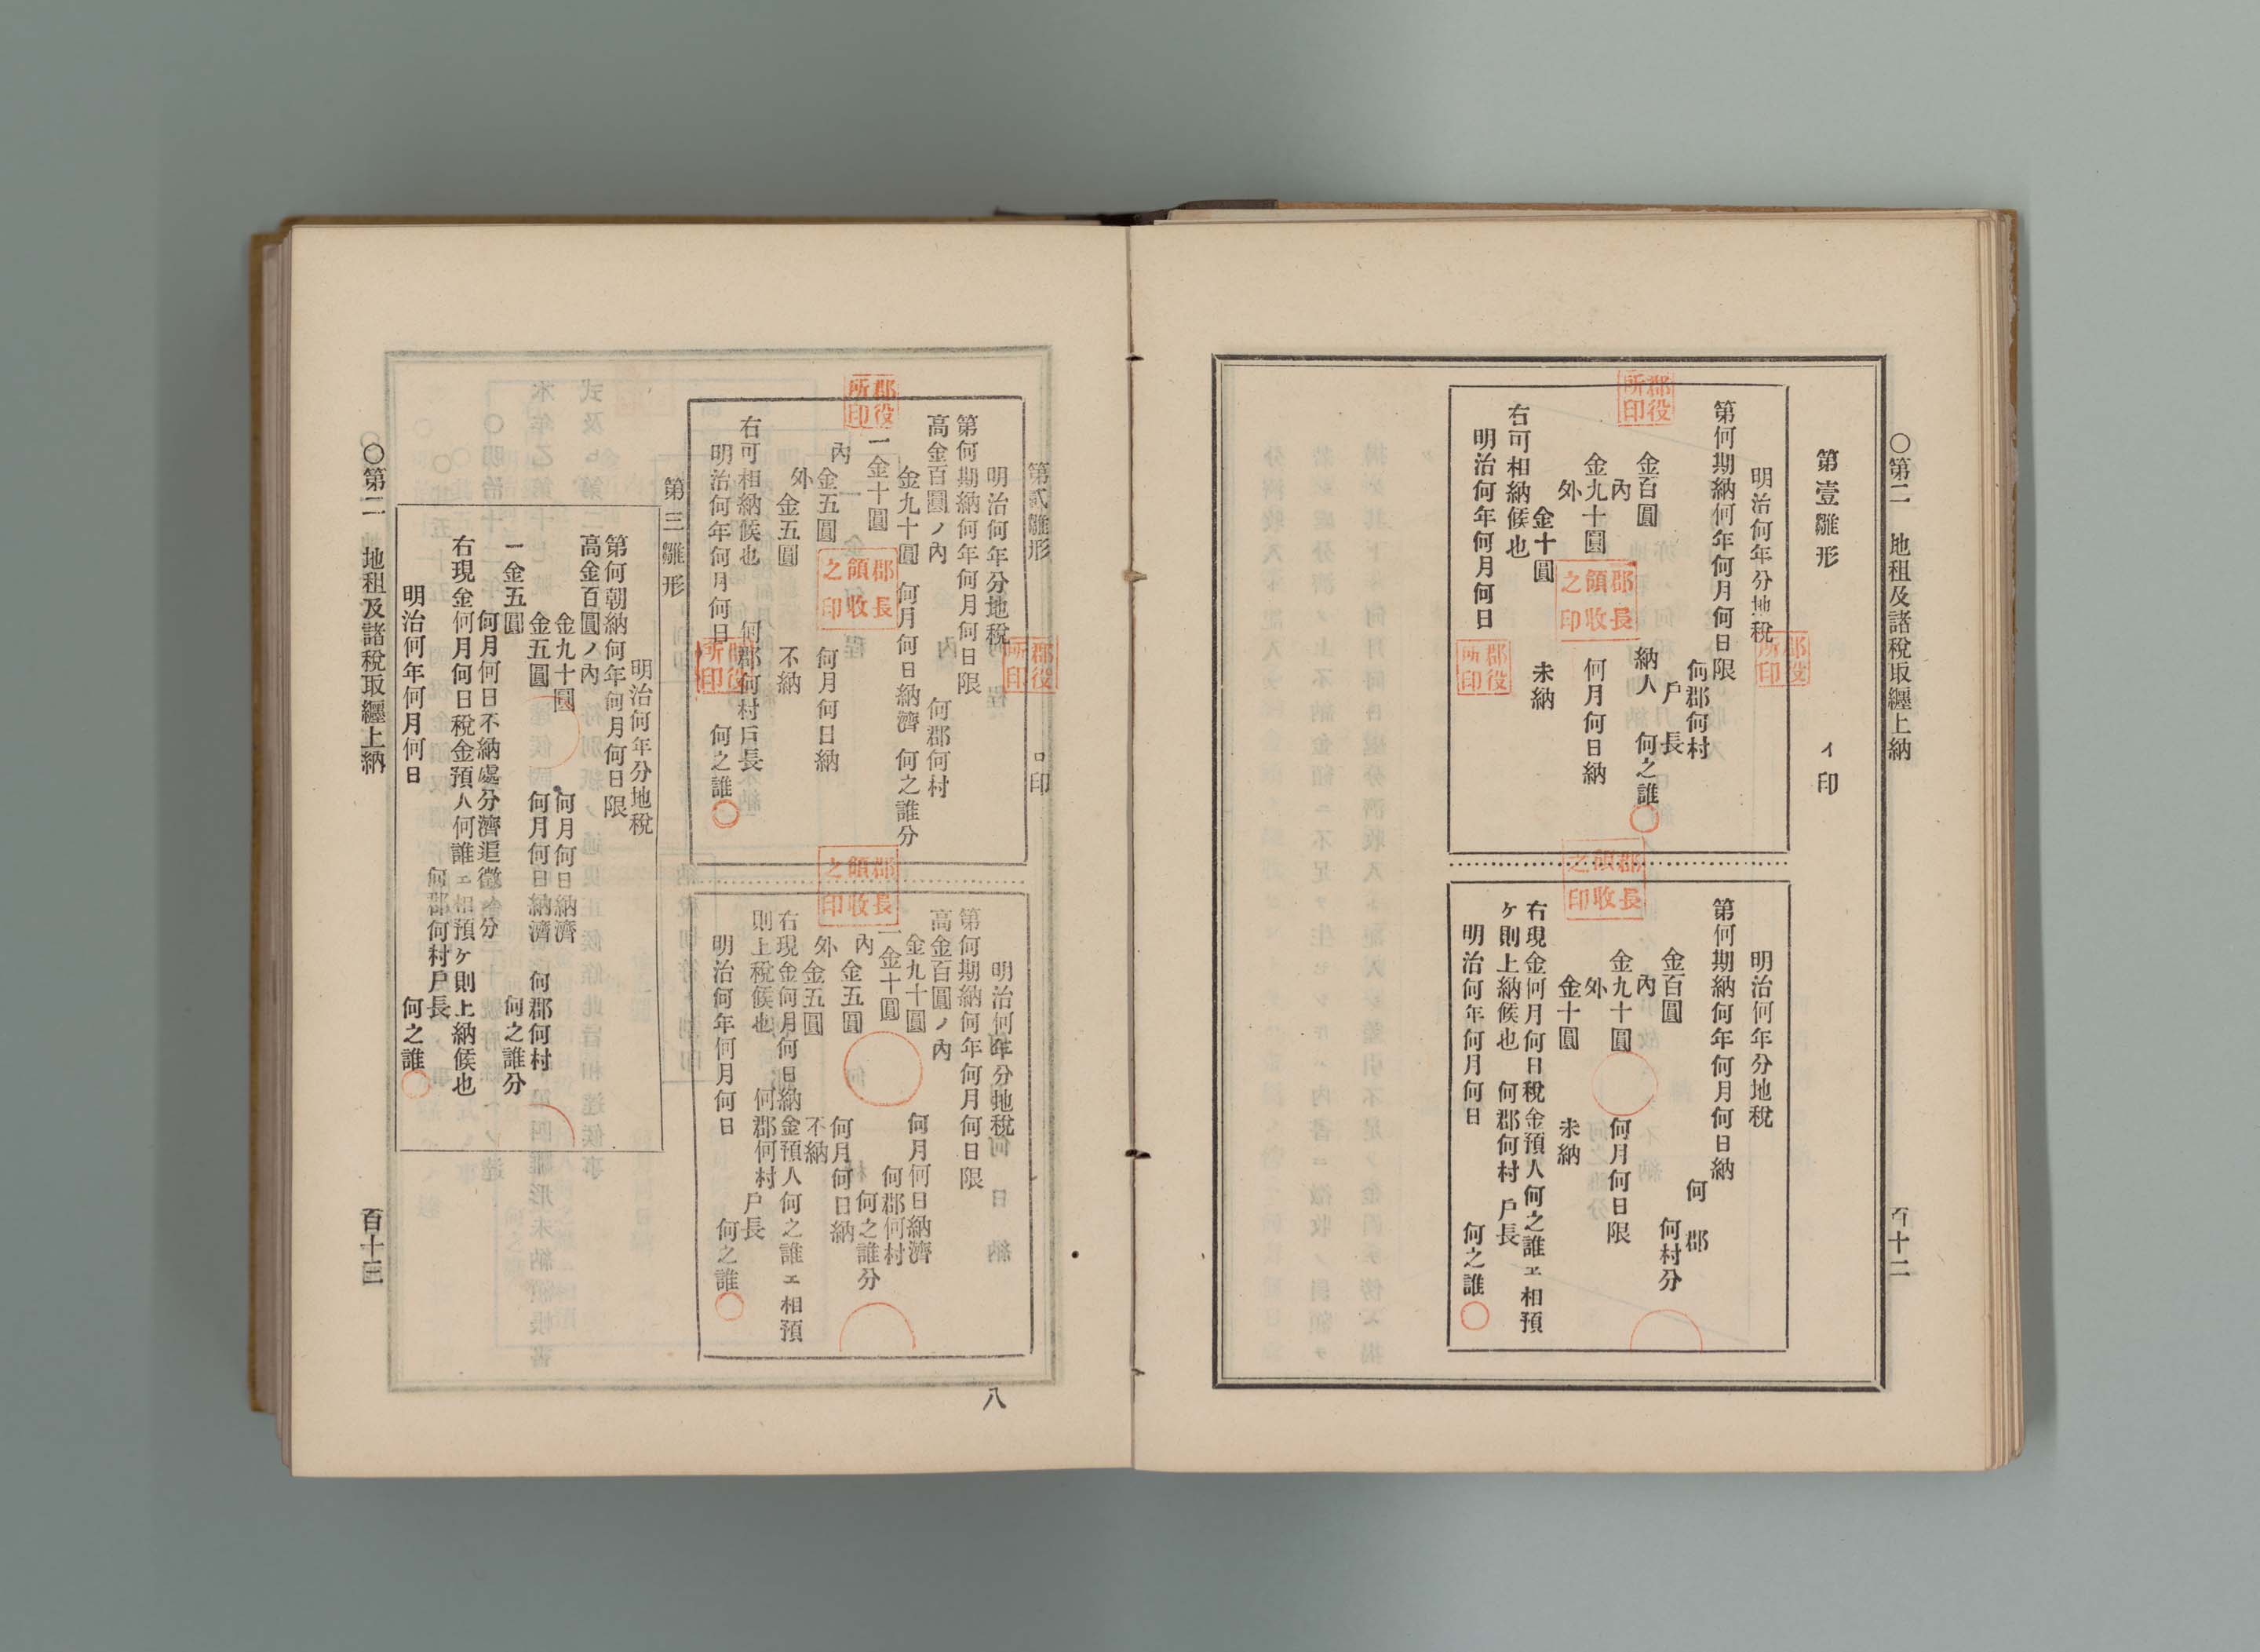 〇第二　地租及諸稅取纒上納
百十二
第壹雛形　イ印
明治何年分地稅
第何期納何年何月何日限
何郡何村
戶長
金百圓　納人　何之誰
內
金九十圓　何月何日納
外
金十圓　未納
右可相納候也
明治何年何月何日
郡役所印
郡役所印
郡役所印
郡長領收之印
郡長領收之印
明治何年分地稅
第何期納何年何月何日納
何郡
何村分
金百圓
內
金九十圓　何月何日限
外
金十圓　未納
右現金何月何日稅金預人何之誰ェ相預
ケ則上納候也　何郡何村　戶長
明治何年何月何日　何之誰
第貳雛形　ロ印
明治何年分地稅
第何期納何年何月何日限
高金百圓ノ內　何郡何村
金九十圓　何月何日納濟　何之誰分
一金十圓
內
金五圓　何月何日納
外
金五圓　不納
右可相納候也　何郡何村戶長
明治何年何月何日　何之誰
郡役所印
郡役所印
郡役所印
郡長領收之印
郡長領收之印
明治何年分地稅
第何期納何年何月何日限
高金百圓ノ內
金九十圓　何月何日納濟
一金十圓　何郡何村
內　何之誰分
金五圓　何月何日納
外
金五圓　不納
右現金何月何日納金預人何之誰ェ相預
則上稅候也　何郡何村　戶長
明治何年何月何日　何之誰
第三雛形
明治何年分地稅
第何朝納何年何月何日限
高金百圓ノ內
金九十圓　何月何日納濟
金五圓　何月何日納濟　何郡何村
一金五圓　何之誰分
何月何日不納處分濟追徵金分
右現金何月何日稅金預人何誰ェ相預ケ則上納候也
何郡何村戶長
明治何年何月何日　何之誰
〇第二　地租及諸稅取纒上納
百十三
八